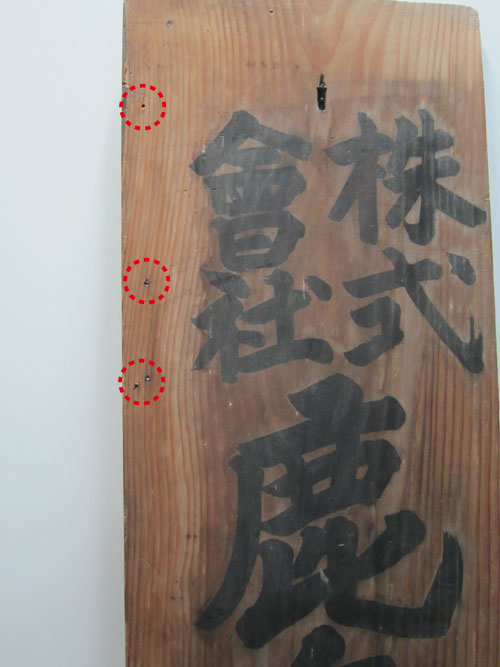 株式
會社
鹿